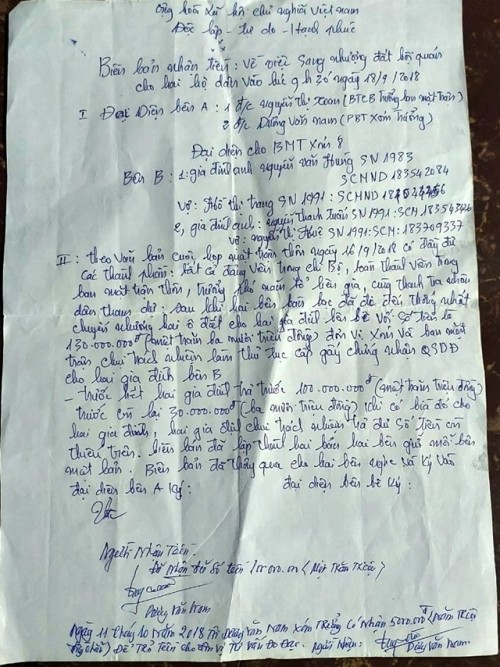 Cộng hoà xã hội chủ nghĩa Việt nam
Độc lập - tự do - Hạnh phúc
Biên bản nhận tiền: Về việc sang nhượng đất hội quán
cho hai hộ dân vào lúc 9h30 ngày 18/9/2018
I Đại Diện bên A: 1 đ/c nguyễn thị xoan (BTCB trưởng ban mặt trận)
2 đ/c Dương văn nam (PBT xóm trưởng)
Đại diện cho BMT xóm 8
Bên B: 1: gia đình anh nguyễn văn Hùng SN 1983
SCMND 183542084
Vợ: Hồ thị trang SN 1991: SCMND
2, gia đình anh: nguyễn thanh tuấn SN 1991: SCM 183543426
vợ: nguyễn thị Huế SN 1991: SCM: 183709337
II: theo văn bản cuộc họp mặt trận thôn ngày 16/9/2018 có đầy đủ
các thành phần: tất cả đảng viên trong chi Bộ, toàn thành viên trong
ban mặt trận thôn, trưởng phó nam tổ liên gia, cùng thanh tra nhân
dân tham dự: sau khi hai bên bàn bạc đã đi đến thống nhất
chuyển nhượng hai ô đất cho hai gia đình bên bê với số tiền là
130.000.000đ (một trăm ba mươi triệu đồng) đơn vị xóm và ban mặt
trận chịu trách nhiệm làm thủ tục cấp giấy chứng nhận QSDĐ
cho hai gia đình bên B
- trước hết hai gia đình trả trước 100.000.000đ (một trăm triệu đồng)
trước còn lại 30.000.000đ (ba mươi triệu đồng) khi có bìa đỏ cho
hai gia đình, hai gia đình chịu trách nhiệm trả đủ số tiền còn
thiếu trên. biên bản đã lập thành hai bản hai bên giữ mỗi bên
một bản. Biên bản đã thông qua cho hai bên nghe và ký vào
đại diện bên A ký: đại diện bên bê ký:
Người Nhận Tiền.
Đã nhận đủ số tiền 100.000.000 (Một Trăm Triệu)
Dương Văn Nam
Ngày 11 tháng 10 năm 2018 Tôi Dương Văn Nam xóm trưởng có nhận 5000.000đ (Năm Triệu
đồng chẵn) Để Trả Tiền cho đơn vị Tư vấn đo đạc. Người Nhận: Dương Văn Nam.